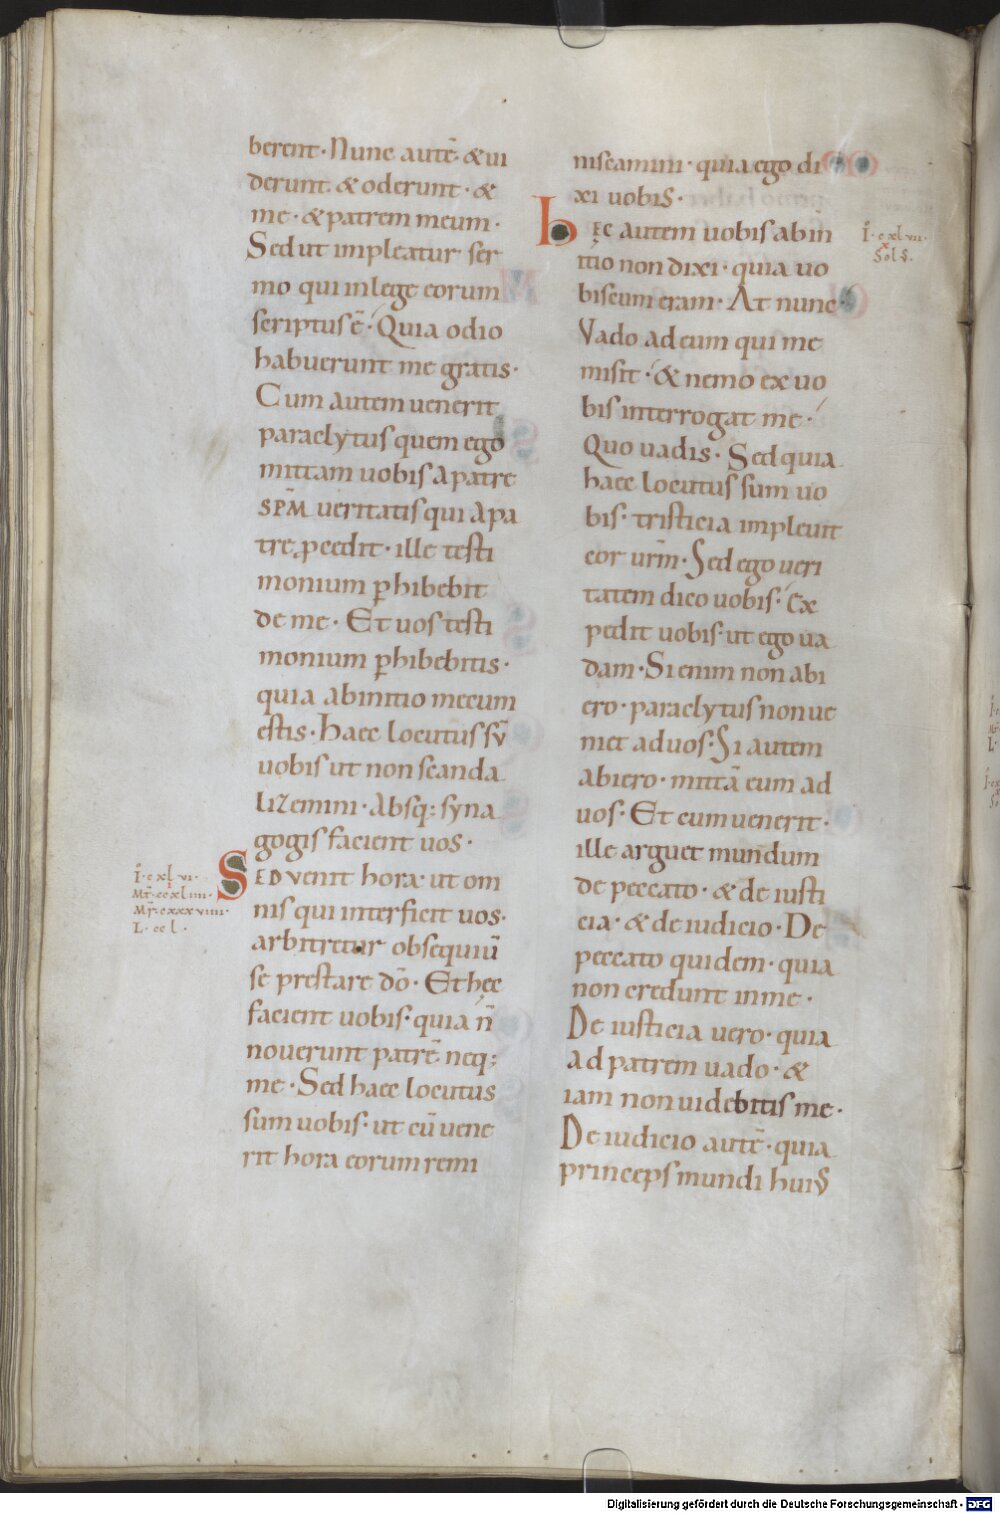 berent · Nunc autē · & ui
derunt · & oderunt · &
me · & patrem meum ·
Sed ut impleatur ser
mo qui in lege eorum
scriptus ē · Quia odio
habuerunt me gratis ·
Cum autem uenerit
paraclytus quem ego
mittam uobis a patre
SPM̄ ueritatis qui a pa
tre ꝓcedit · ille testi
monium ꝑhibebit
de me · Et uos testi
monium ꝑhibebitis ·
quia ab initio mecum
estis · Haec locutus sū
uobis ut non scanda
lizemini · Absq; syna
gogis facient uos ·
SED uenit hora ut om
nis qui interficit uos ·
arbitretur obsequiū
se prestare dō · Et hęc
facient uobis · quia n̄
nouerunt patrē neq;
me · Sed haec locutus
sum uobis · ut cū uene
rit hora eorum remi
I · cxlvi ·
Mt̄ · ccxliiii ·
Mr̄ · cxxxviiii ·
L · ccl ·
niscamini · quia ego di
xi uobis ·
hęc autem uobis ab in
itio non dixi · quia uo
biscum eram · At nunc
Vado ad eum qui me
misit · & nemo ex uo
bis interrogat me ·
Quo uadis · Sed quia
haec locutus sum uo
bis · tristicia impleuit
cor urm̄ · Sed ego ueri
tatem dico uobis · Ex
pedit uobis · ut ego ua
dam · Si enim non abi
ero · paraclytus non ue
niet ad uos · Si autem
abiero · mittā eum ad
uos · Et cum uenerit ·
ille arguet mundum
de peccato · & de iusti
cia · & de iudicio · De
peccato quidem · quia
non credunt in me ·
De iusticia uero · quia
ad patrem uado · &
iam non uidebitis me ·
De iudicio autē · quia
princeps mundi huiꝰ
I · cxlvii ·
x
Solꝰ ·
Digitalisierung gefördert durch die Deutsche Forschungsgemeinschaft - DFG